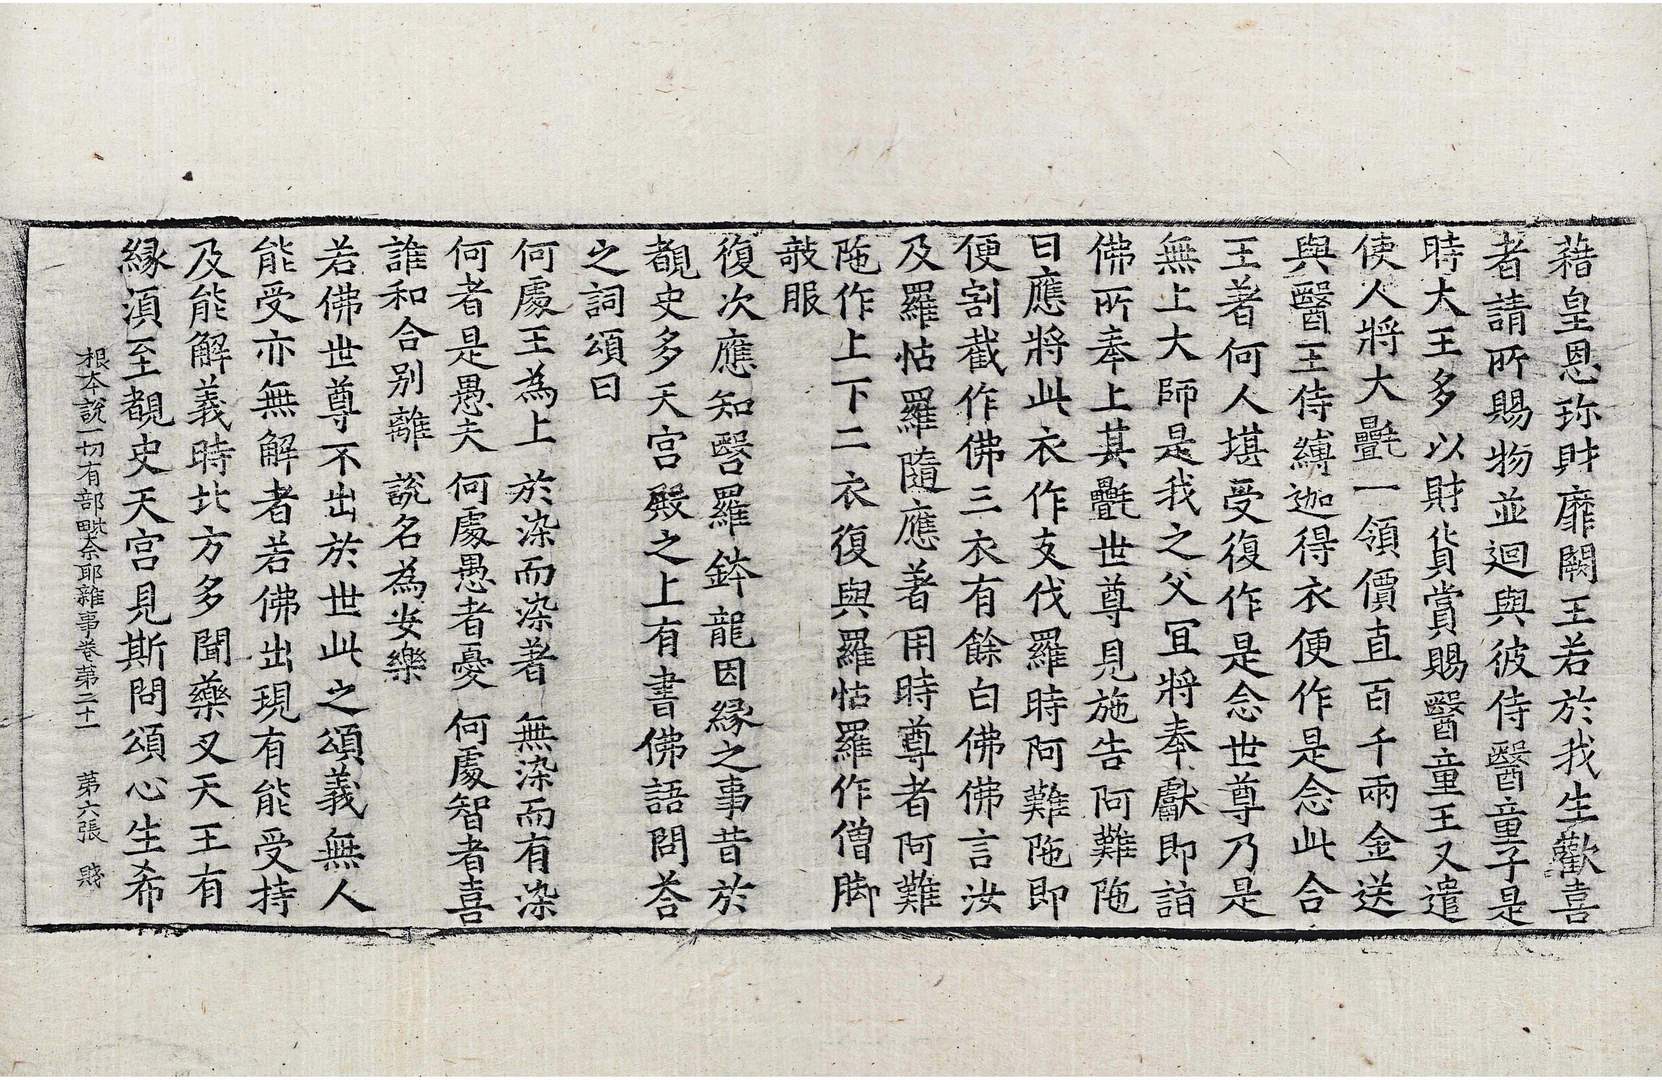 藉皇恩珎財靡闕王若於我生歡喜
者請所賜物並迴與彼侍醫童子是
時大王多以財貨賞賜醫童王又遣
使人將大㲲一領價直百千兩金送
與醫王侍縛迦得衣便作是念此合
王著何人堪受復作是念世尊乃是
無上大師是我之父冝將奉獻即詣
佛所奉上其㲲世尊見施告阿難陁
曰應將此衣作支伐羅時阿難陁即
便割截作佛三衣有餘白佛佛言汝
及羅怙羅隨應著用時尊者阿難
陁作上下二衣復與羅怙羅作僧脚
敧服
復次應知醫羅鉢龍因緣之事昔於
覩史多天宮殿之上有書佛語問荅
之詞頌曰
何處王為上 於染而染著 無染而有染
何者是愚夫 何處愚者憂 何處智者喜
誰和合別離 說名為安樂
若佛世尊不出於世此之頌義無人
能受亦無解者若佛出現有能受持
及能解義時北方多聞藥叉天王有
緣湏至覩史天宮見斯問頌心生希
根本說一切有部毗奈耶雜事卷第二十一 第六張 賤